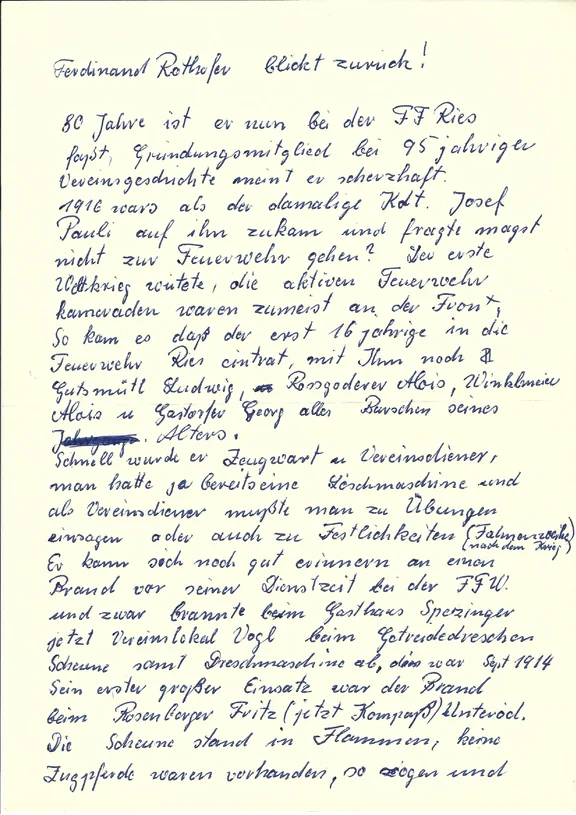 Ferdinand Rothofer blickt zurück!
80 Jahre ist er nun bei der FF Ries
faßt, Gründungsmitglied bei 95 jähriger
Vereinsgeschichte meint er scherzhaft.
1916 wars als der damalige Kdt. Josef
Pauli auf ihn zukam und fragte magst
nicht zur Feuerwehr gehen? Der erste
Weltkrieg wütete, die aktiven Feuerwehr
kameraden waren zumeist an der Front,
So kam es daß der erst 16 jährige in die
Feuerwehr Ries eintrat, mit Ihm noch
Gutsmütl Ludwig, Rossgoderer Alois, Winklmeier
Alois u Gastorfer Georg alles Burschen seines
Alters.
Schnell wurde er Zeugwart u Vereinsdiener,
man hatte ja bereits eine Löschmaschine und
als Vereinsdiener mußte man zu Übungen
einsagen oder auch zu Festlichkeiten (Fahnenweihe
nach dem Krieg)
Er kann sich noch gut erinnern an einen
Brand vor seiner Dienstzeit bei der FFW.
und zwar brannte beim Gasthaus Sperzinger
jetzt Vereinslokal Vogl beim Getreidedreschen
Scheune samt Dreschmaschine ab, dies war Sept 1914
Sein erster großer Einsatz war der Brand
beim Rosenberger Fritz (jetzt Kompaß) Unteröd.
Die Scheune stand in Flammen, keine
Zugpferde waren vorhanden, so zogen und